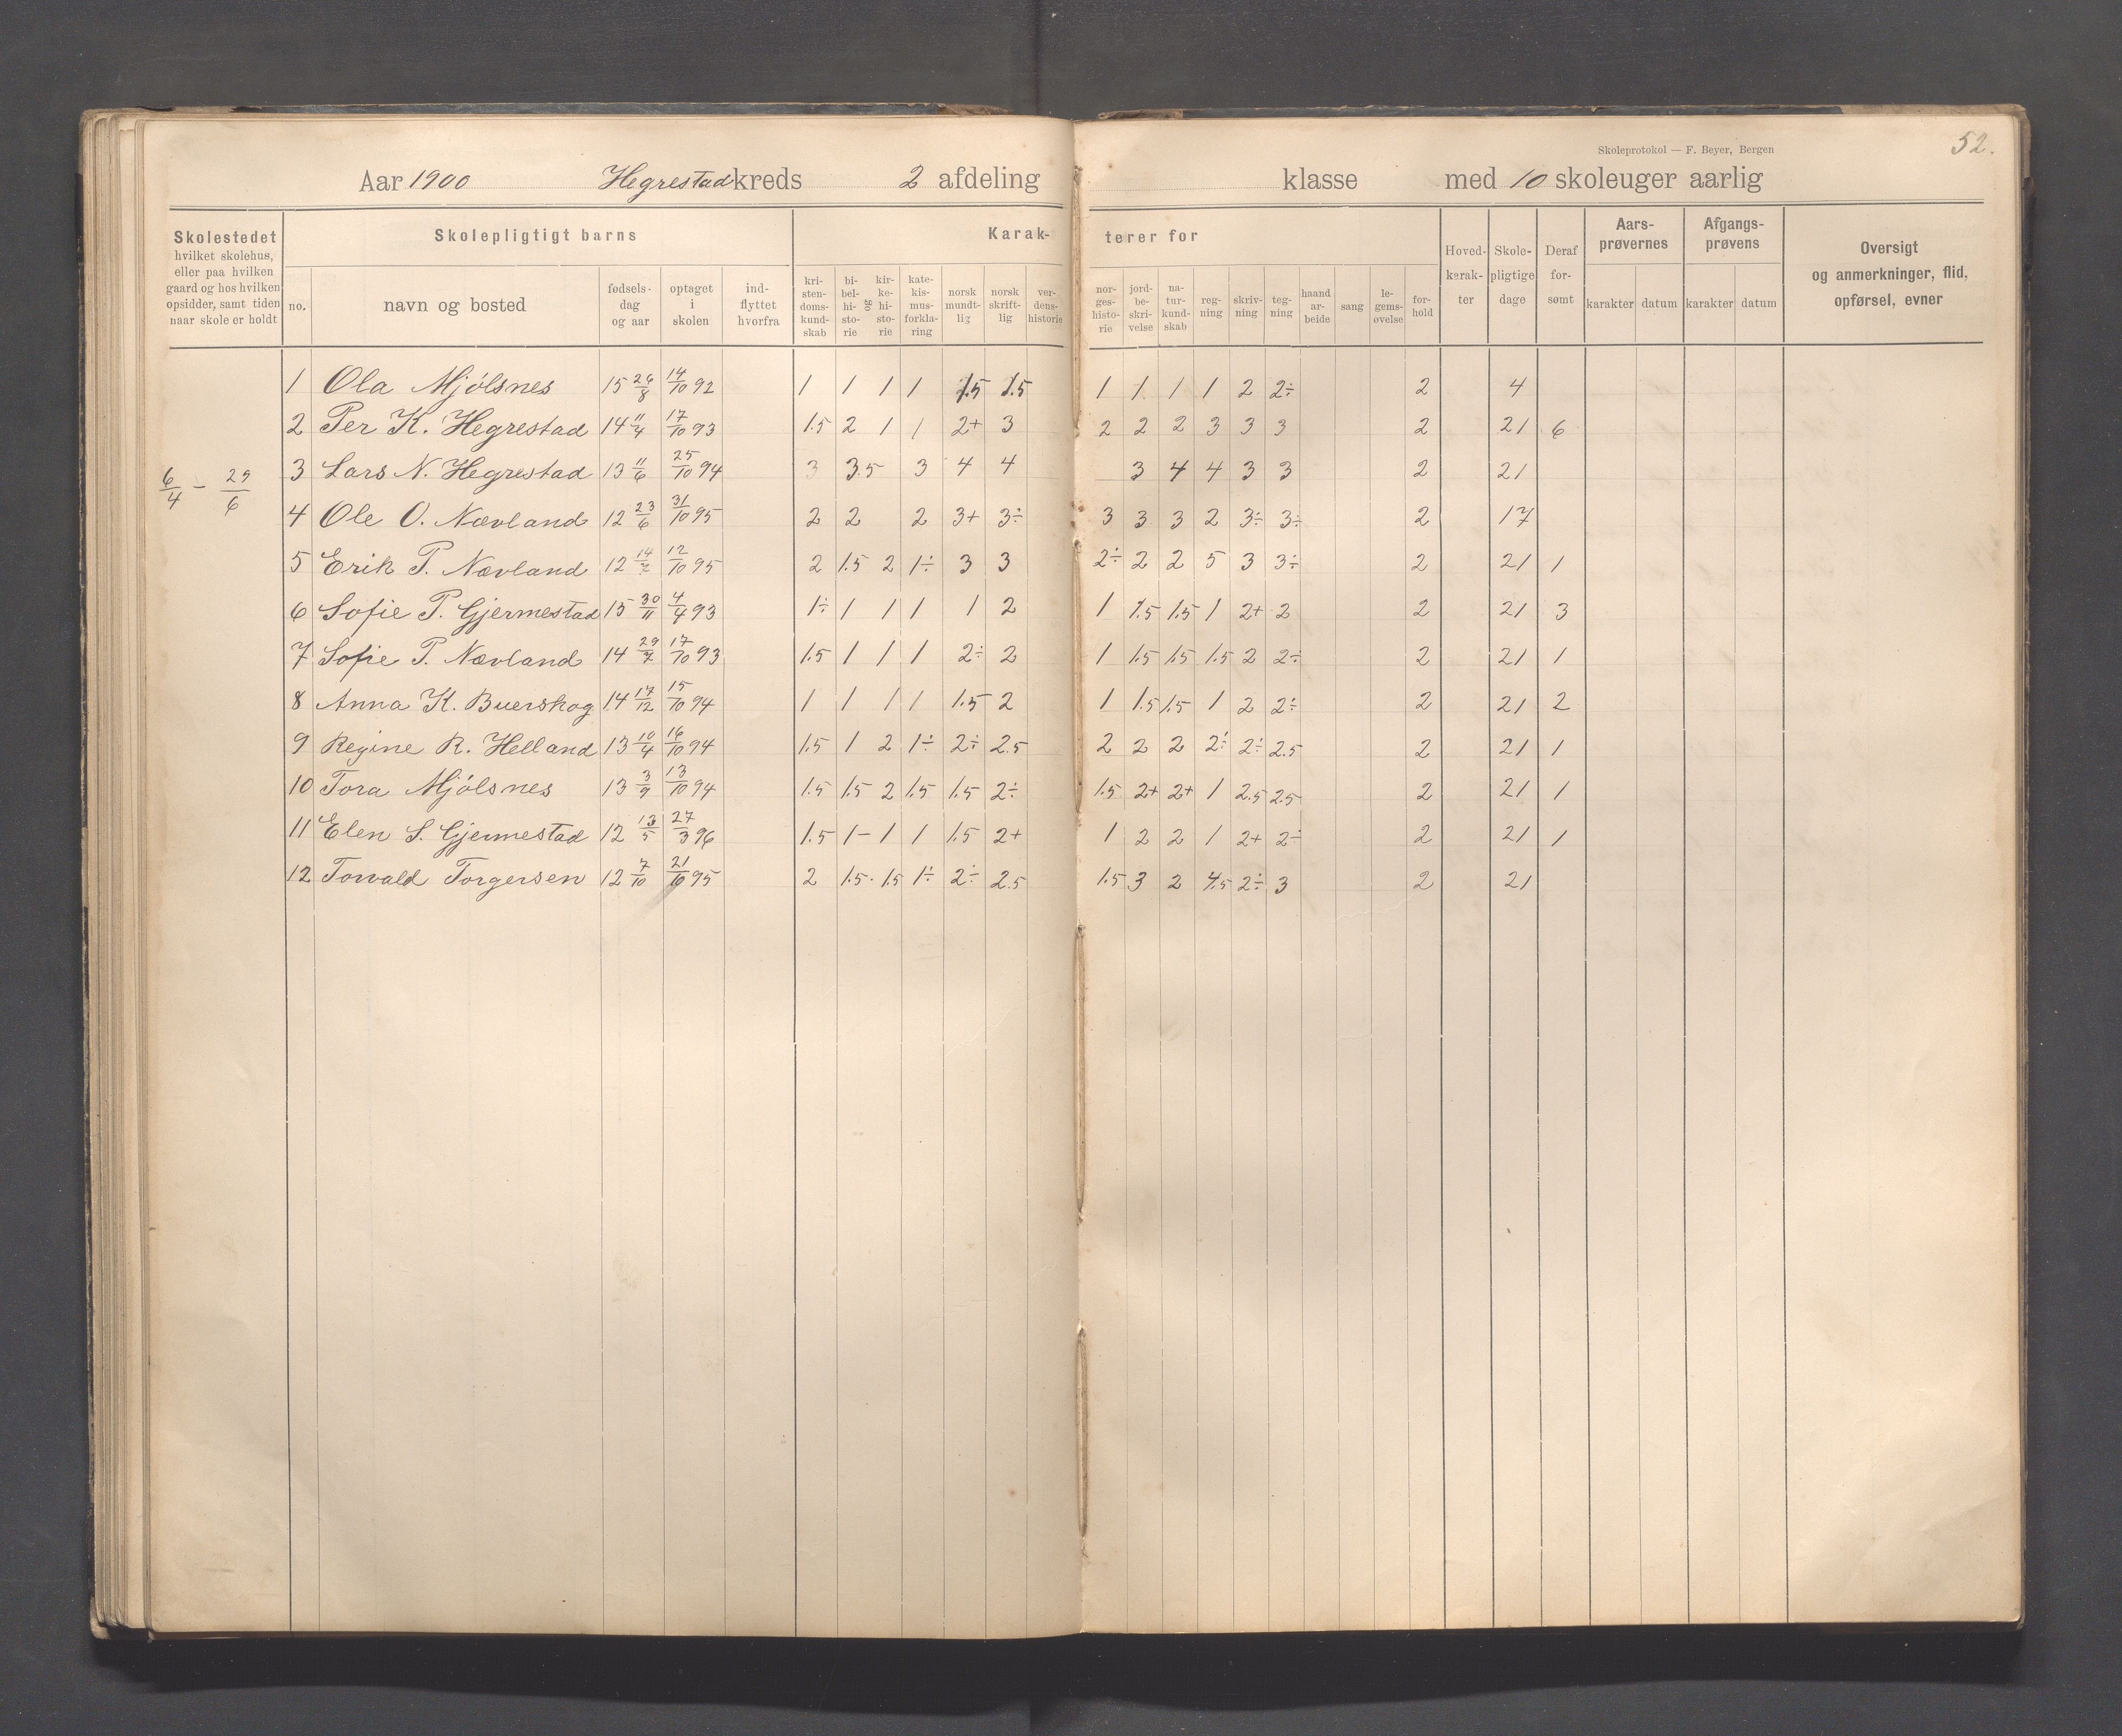 Skoleprotokol — F. Beyer, Bergen
52.
Aar 1900 Hegrestad kreds 2 afdeling klasse med 10 skoleuger aarlig
Skolestedet hvilket skolehus, eller paa hvilken gaard og hos hvilken opsidder, samt tiden naar skole er holdt
Skolepligtigt barns
no. navn og bosted fødsels-dag og aar optaget i skolen ind-flyttet hvorfra
Karak-terer for
kri-sten-doms-kund-skab bi-bel-hi-sto-rie og kir-ke-hi-sto-rie kate-kis-mus-forkla-ring norsk mundt-lig norsk skrift-lig ver-dens-historie nor-ges-histo-rie jord-be-skri-velse na-tur-kund-skab reg-ning skriv-ning teg-ning haand ar-beide sang le-gems-øvelse for-hold
Hoved-karak-ter Skole-pligtige dage Deraf for-sømt
Aars-prøvernes karakter datum
Afgangs-prøvens karakter datum
Oversigt og anmerkninger, flid, opførsel, evner
1 Ola Mjólsnes 15 26/8 14/10 92 1 1 1 1 1.5 1.5 1 1 1 1 2 2÷ 2 4
2 Per K. Hegrestad 14 11/4 17/10 93 1.5 2 1 1 2+ 3 2 2 2 3 3 3 2 21 6
6/4 – 29/6
3 Lars N. Hegrestad 13 11/6 25/10 94 3 3.5 3 4 4 3 4 4 3 3 2 21
4 Ole O. Nævland 12 23/6 31/10 95 2 2 2 3+ 3÷ 3 3 3 2 3÷ 3÷ 2 17
5 Erik P. Nævland 12 14/7 12/10 95 2 1.5 2 1÷ 3 3 2÷ 2 2 5 3 3÷ 2 21 1
6 Sofie P. Gjermestad 15 30/11 4/4 93 1÷ 1 1 1 1 2 1 1.5 1.5 1 2+ 2 2 21 3
7 Sofie P. Nævland 14 29/7 17/10 93 1.5 1 1 1 2÷ 2 1 1.5 1.5 1.5 2 2÷ 2 21 1
8 Anna K. Buerskog 14 17/12 15/10 94 1 1 1 1 1.5 2 1 1.5 1.5 1 2 2÷ 2 21 2
9 Regine R. Helland 13 10/4 16/10 94 1.5 1 2 1÷ 2÷ 2.5 2 2 2 2÷ 2÷ 2.5 2 21 1
10 Tora Mjólsnes 13 3/9 13/10 94 1.5 1.5 2 1.5 1.5 2÷ 1.5 2+ 2+ 1 2.5 2.5 2 21 1
11 Elen S. Gjermestad 12 13/5 27/3 96 1.5 1– 1 1 1.5 2+ 1 2 2 1 2+ 2÷ 2 21 1
12 Torvald Torgersen 12 7/10 21/10 95 2 1.5 1.5 1÷ 2÷ 2.5 1.5 3 2 4.5 2÷ 3 2 21